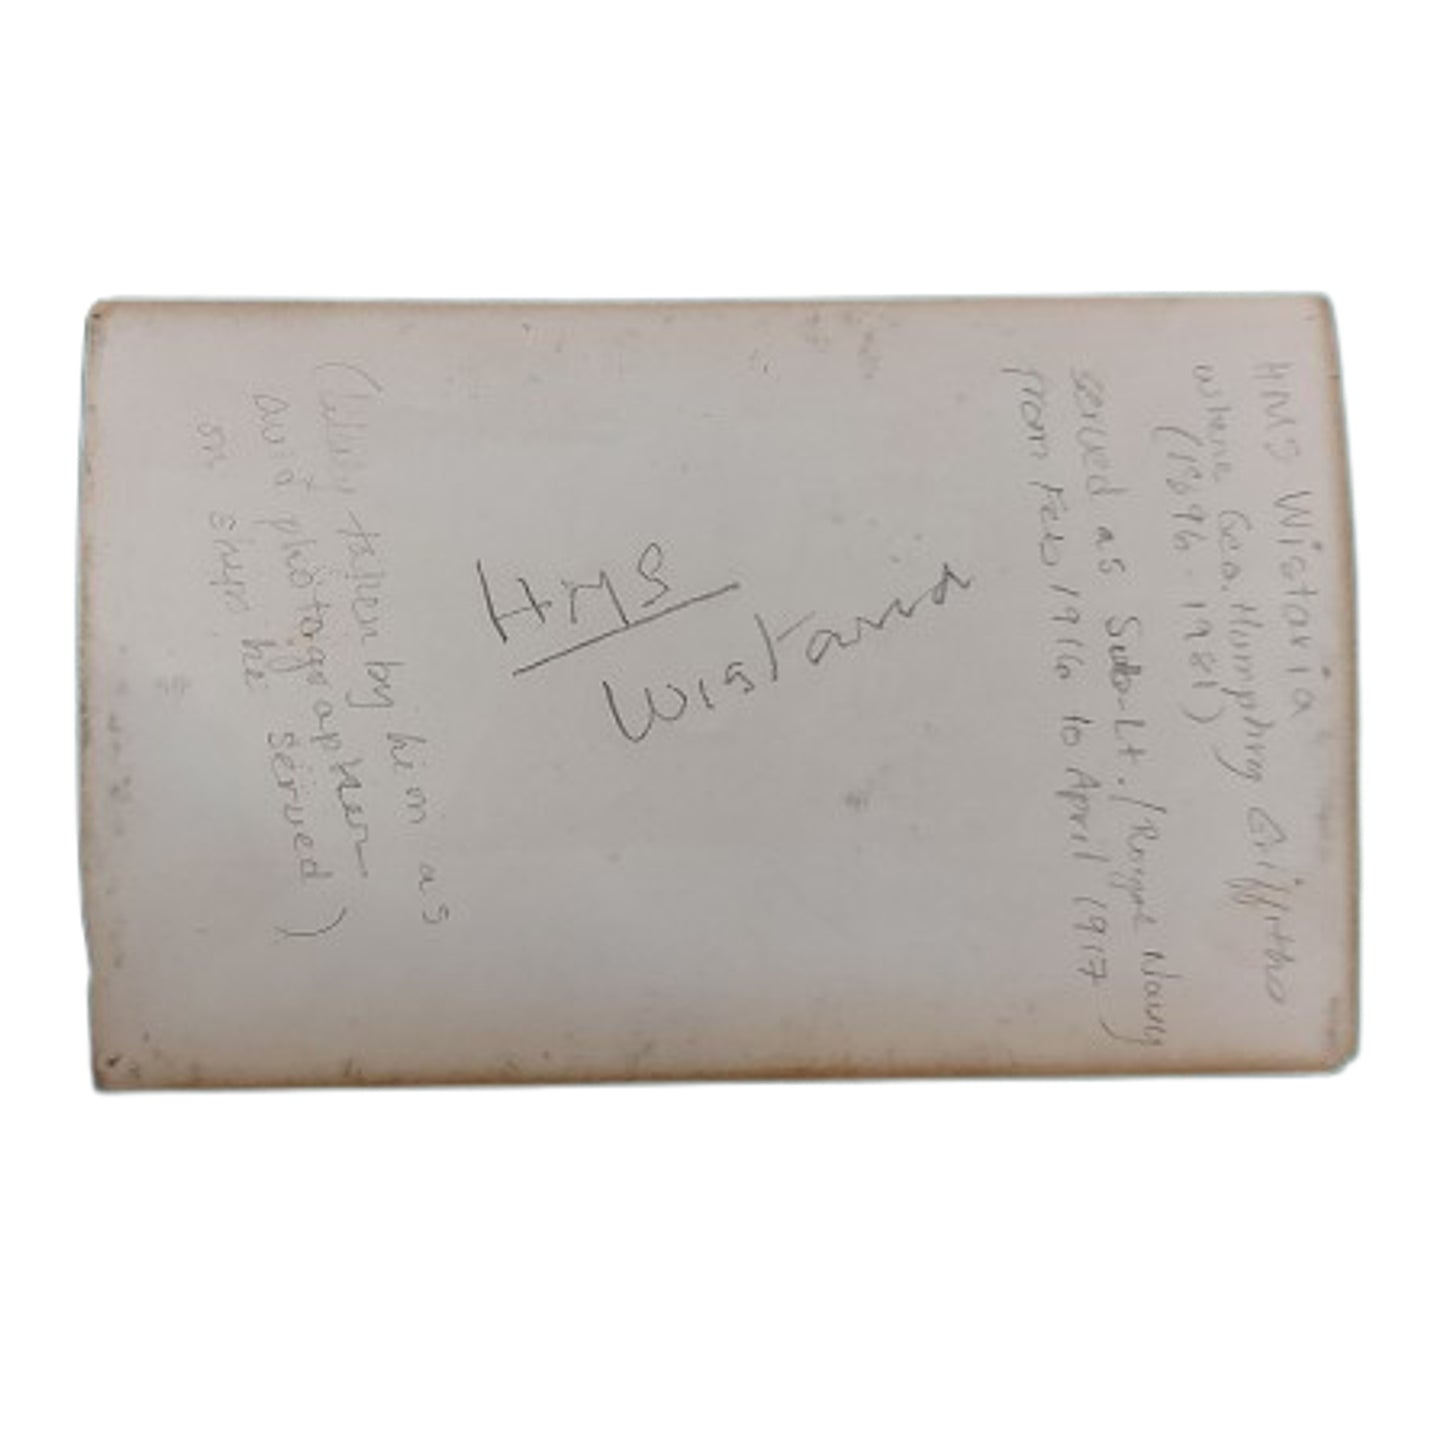 HMS Wistaria
where Geo. Humphry Griffiths
(1896 - 1981)
served as Sub-Lt. / Royal Navy
from Feb 1916 to April 1917
HMS
Wistaria
taken by him as
avid photographer
on ships he served)